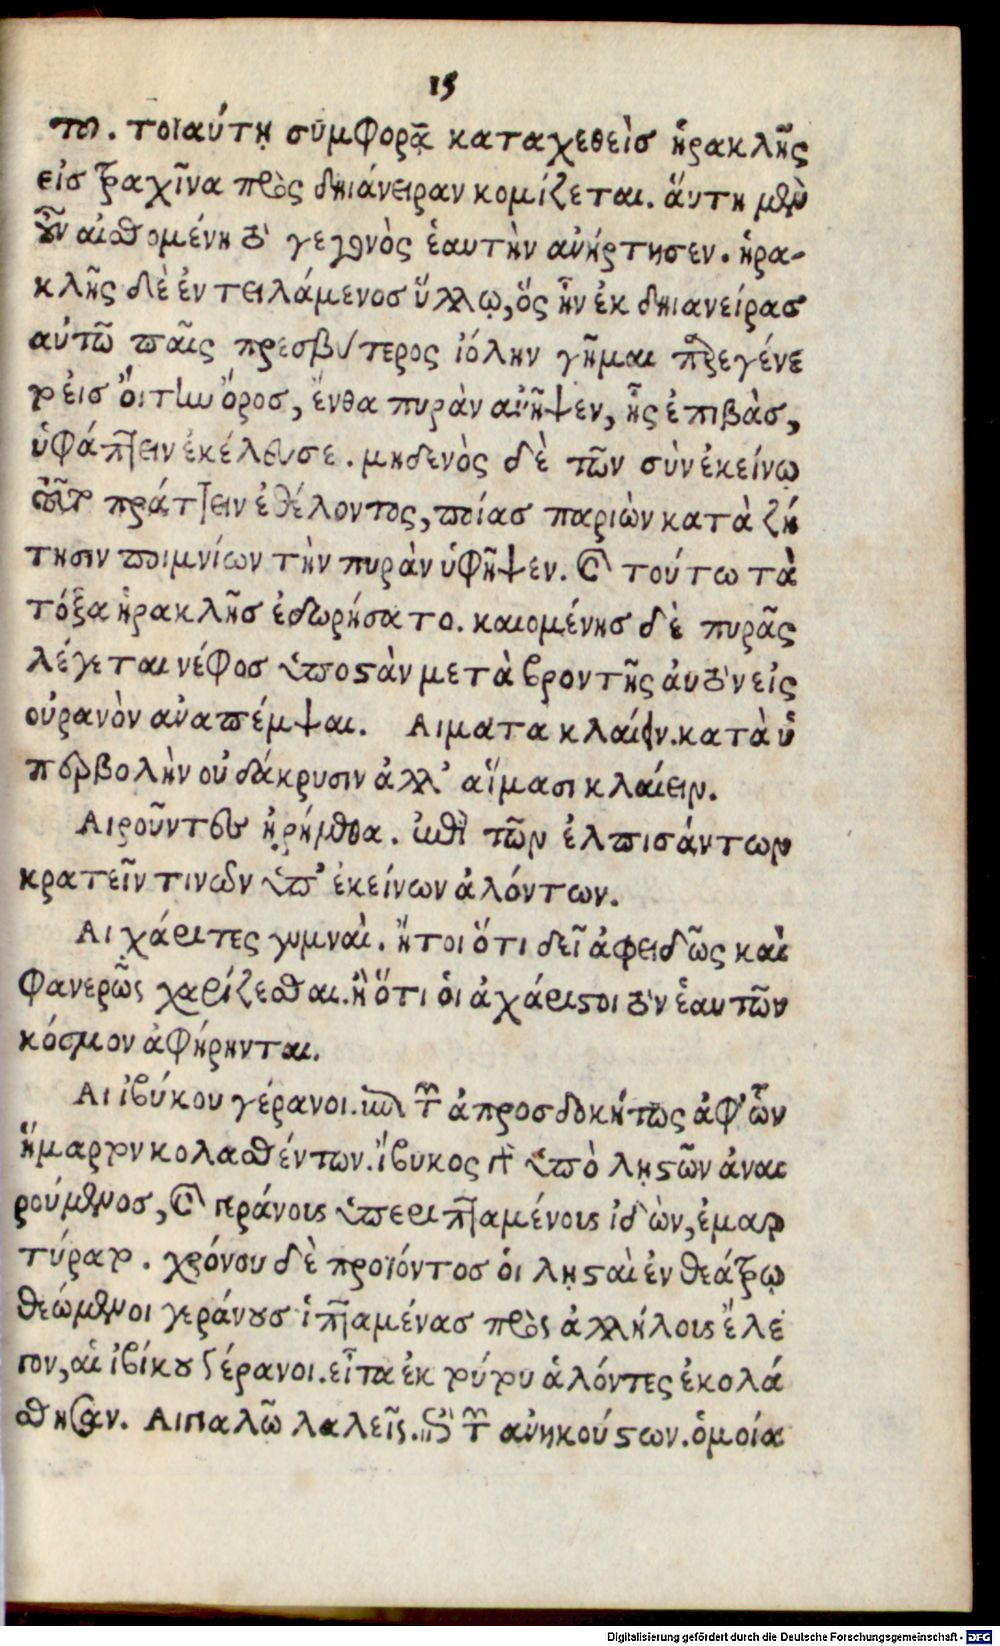 15
το. τοιαύτῃ συμφορᾷ καταχεθεὶσ ἡρακλῆς
εἰσ τραχῖνα πρὸς δηιάνειραν κομίζεται. ἅυτη μὲν
οὖν αἰσθομένη τὸ γεγονὸς ἑαυτὴν ἀνήρτησεν. ἡρα-
κλῆς δὲ ἐντειλάμενοσ ὕλλῳ, ὅς ἦν ἐκ δηιανείρασ
αὐτῶ παῖς πρεσβύτερος ἰόλην γῆμαι παρεγένε
το εἰσ ὄιτην ὄροσ, ἔνθα πυρὰν ἀνῆψεν, ἧς ἐπιβὰσ,
ὑφάπτειν ἐκέλευσε. μηδενὸς δὲ τῶν σὺν ἐκείνῳ
τοῦτο πράττειν ἐθέλοντος, ποίασ παριὼν κατὰ ζή
τησιν ποιμνίων τὴν πυρὰν ὑφῆψεν. καὶ τούτω τὰ
τόξα ἡρακλῆσ ἐδωρήσατο. καιομένησ δὲ πυρᾶς
λέγεται νέφοσ ὑποστὰν μετὰ βροντῆς ἀυτὸν εἰς
οὐρανὸν ἀναπέμψαι. Αιματα κλαίειν. κατὰ ὑ
περβολὴν οὐ δάκρυσιν ἀλλ’ αἵμασι κλαίειν.
Αιροῦντες ἡρήμεθα. ἐπὶ τῶν ἐλπισάντων
κρατεῖν τινῶν ὑπ’ ἐκείνων ἁλόντων.
Αι χάριτες γυμναὶ. ἤτοι ὅτι δεῖ ἀφειδῶς καὶ
φανερῶς χαρίζεσθαι. ἢ ὅτι ὁι ἀχάριστοι τὸν ἑαυτῶν
κόσμον ἀφήρηνται.
Αι ἰβύκου γέρανοι. ἐπὶ τῶν ἀπροσδοκήτως ἀφ’ ὧν
ἥμαρτον κολασθέντων. ἴβυκος γὰρ ὑπὸ λῃστῶν ἀναι
ρούμενοσ, καὶ γεράνοις ὑπεριπταμένοις ἰδὼν, ἐμαρ
τύρατο. χρόνου δὲ προϊόντοσ ὁι λῃσταὶ ἐν θεάτρῳ
θεώμενοι γεράνουσ ἱπταμένασ πρὸς ἀλλήλοις ἔλε
γον, αἱ ἰβίκου γέρανοι. εἶτα ἐκ τούτου ἁλόντες ἐκολά
σθησαν. Αιγιαλῶ λαλεῖς. ἐπὶ τῶν ἀνηκούστων. ὁμοία
Digitalisierung gefördert durch die Deutsche Forschungsgemeinschaft - DFG